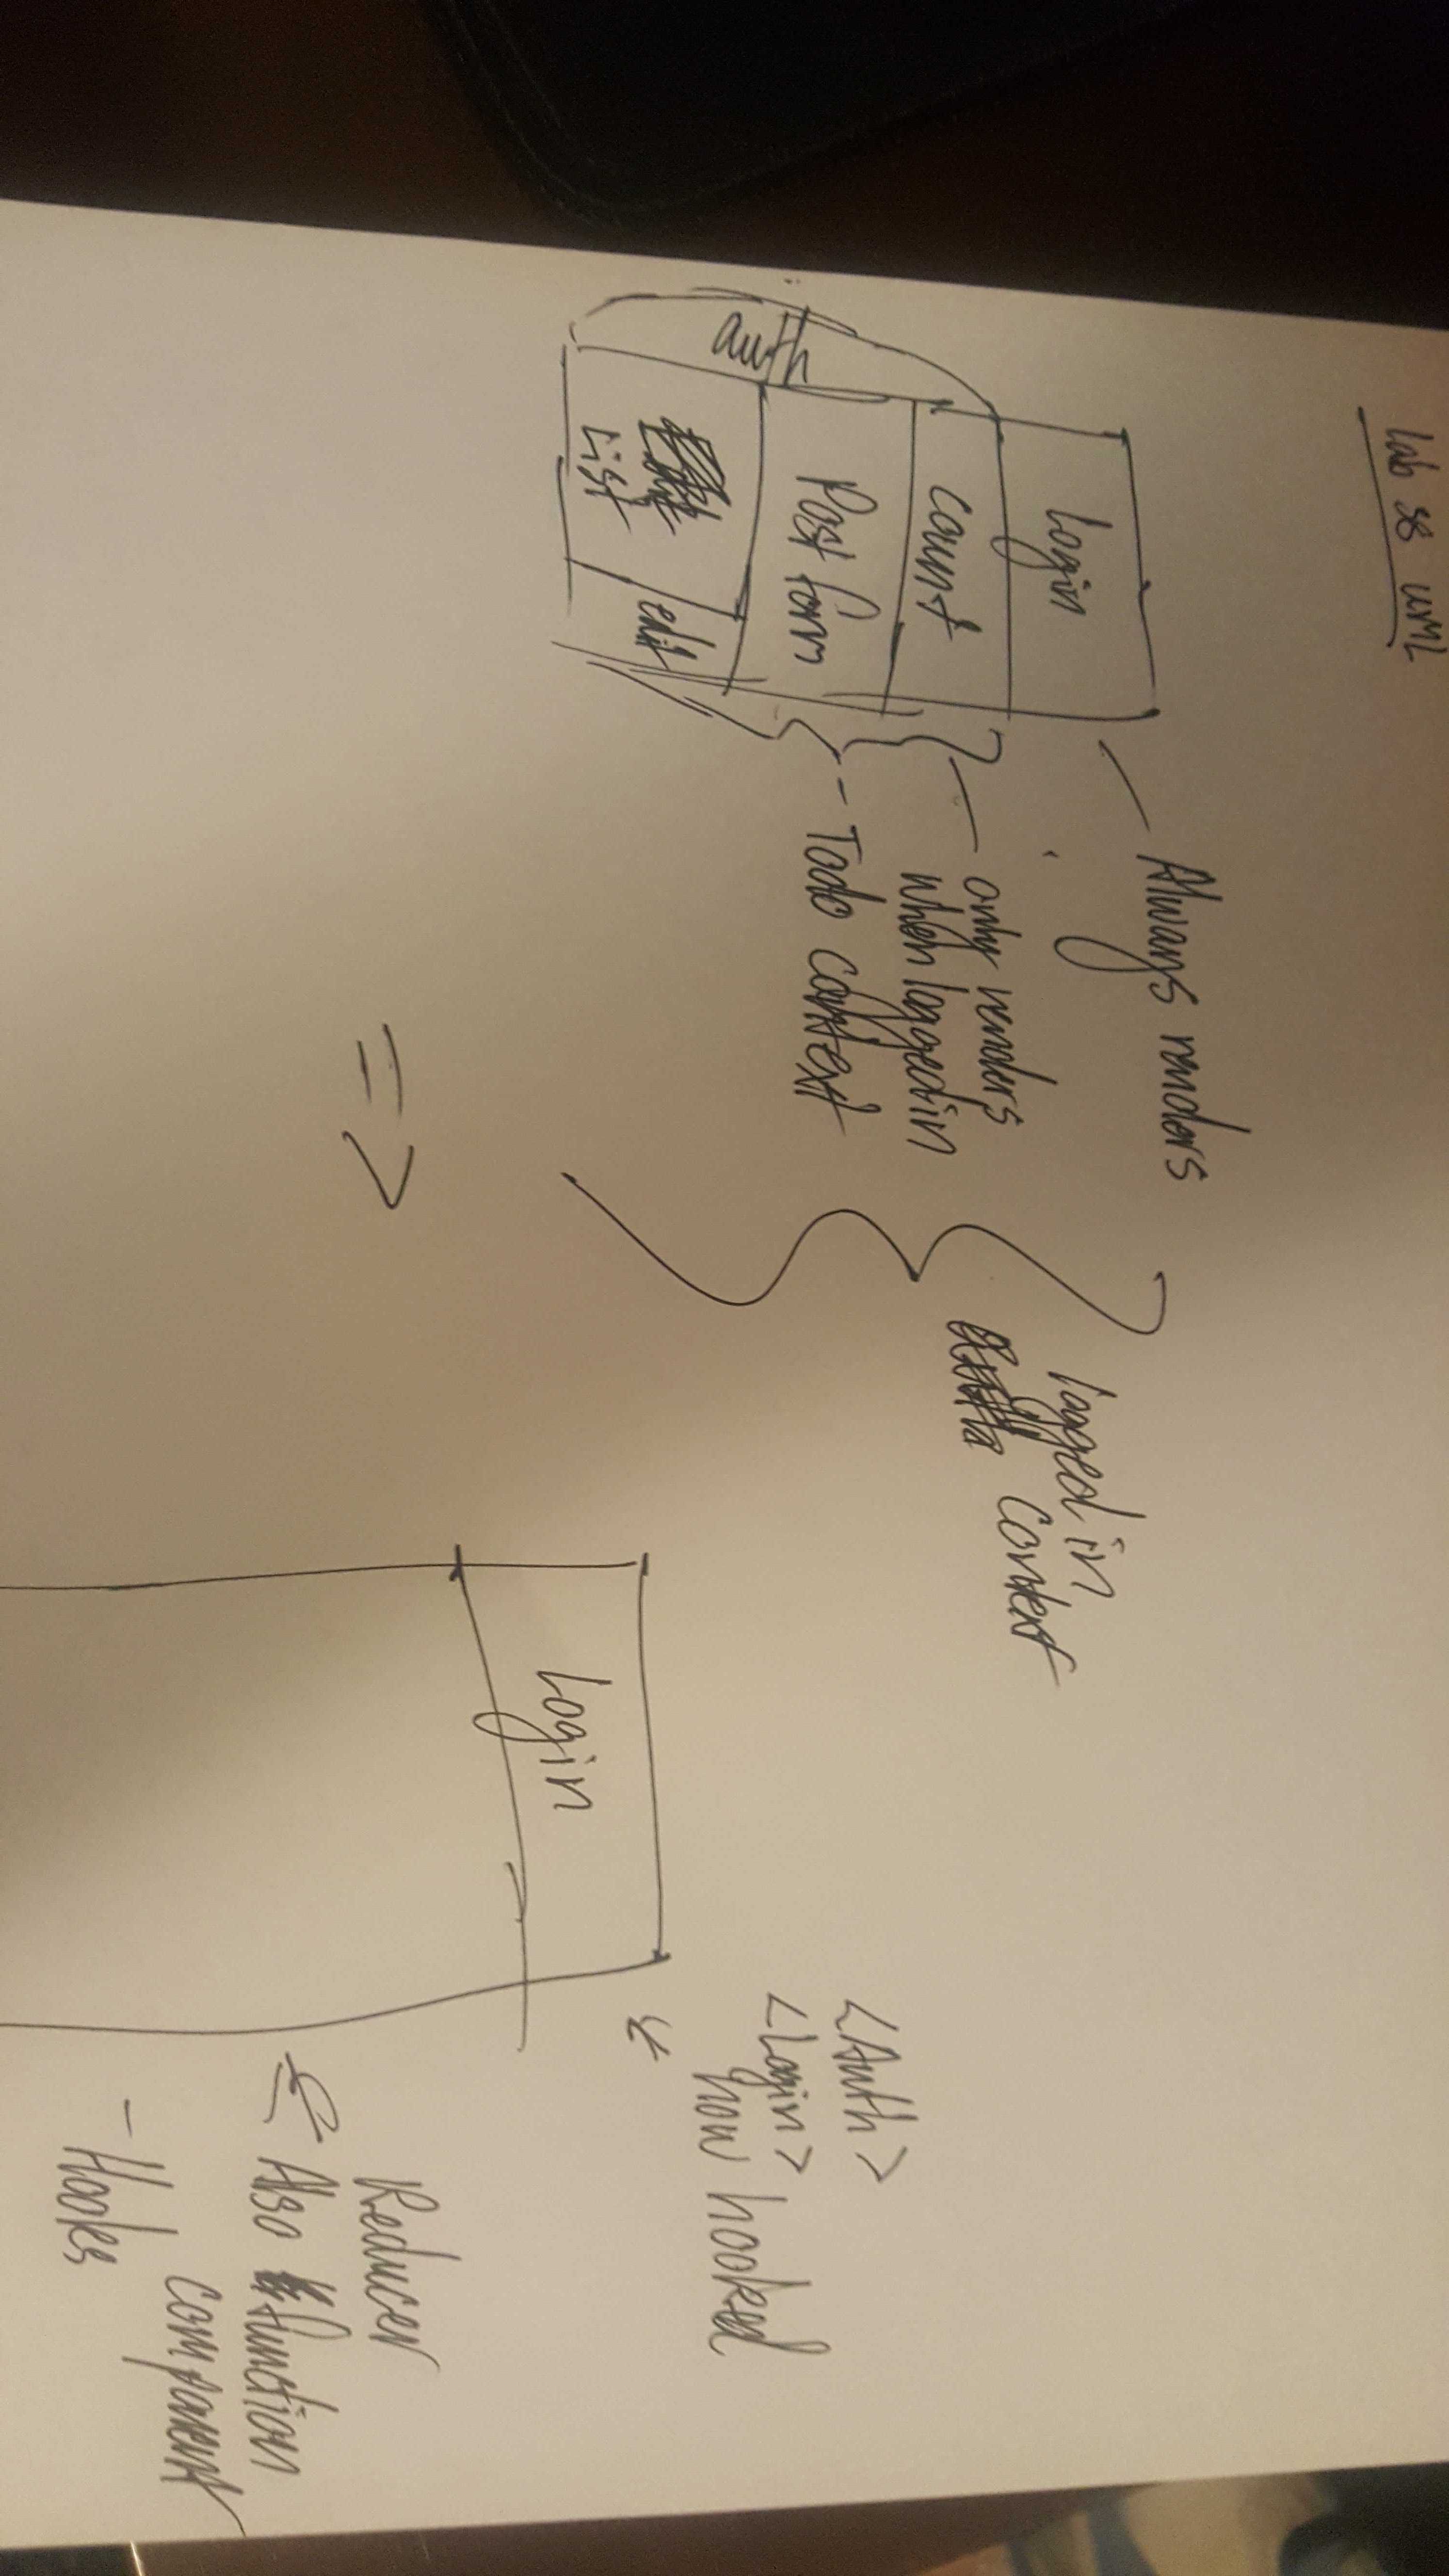 lab 38 uml
login
count
Post form
auth
List
edit
Always renders
only renders
when logged in
Todo context
logged in
context
=>
Login
<Auth>
<Login>
now hooked
Reducer
Also function
component
- Hooks